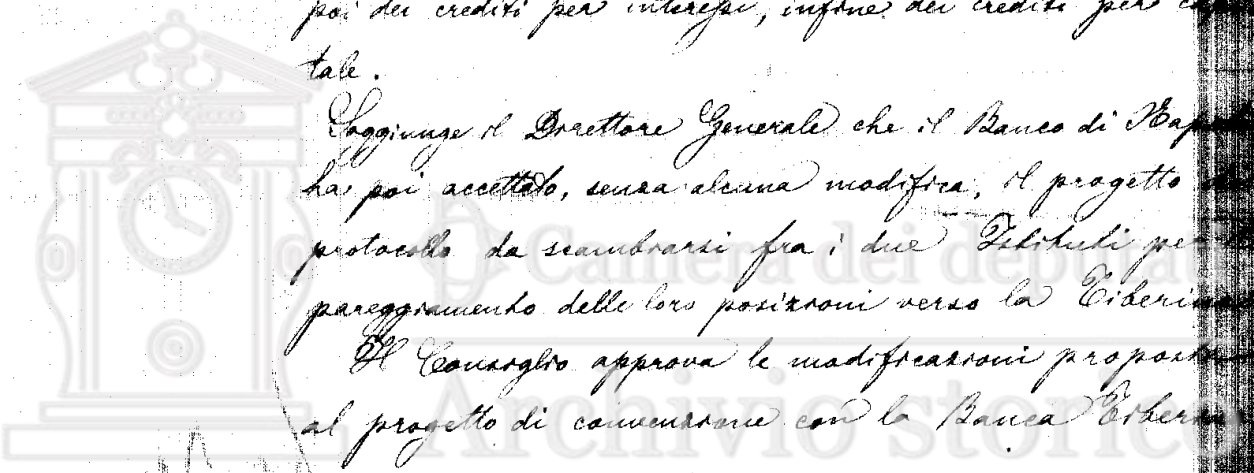 poi dei crediti per interessi, infine dei crediti per
tale.
Soggiunge il Direttore Generale che il Banco di
ha poi accettato, senza alcuna modifica, il progetto
protocollo da scambiarsi fra i due Istituti per
pareggiamento delle loro posizioni verso la Tiberina
Il Consiglio approva le modificazioni proposte
al progetto di convenzione con la Banca Tiberina
Camera dei deputati
Archivio storico